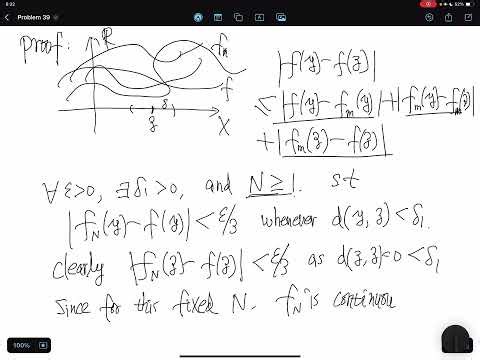 8:22
Problem 39
52%
proof:
ℝ
fₙ
f
δ
z
X
|f(y)-f(z)|
≤ |f(y)-fₘ(y)|+|fₘ(y)-fₘ(z)|
+|fₘ(z)-f(z)|
∀ε>0, ∃δ₁>0, and N≥1. st
|f_N(y)-f(y)|<ε/3 whenever d(y,z)<δ₁.
clearly |f_N(z)-f(z)|<ε/3 as d(z,z)=0<δ₁
since for this fixed N. f_N is continuou
100%